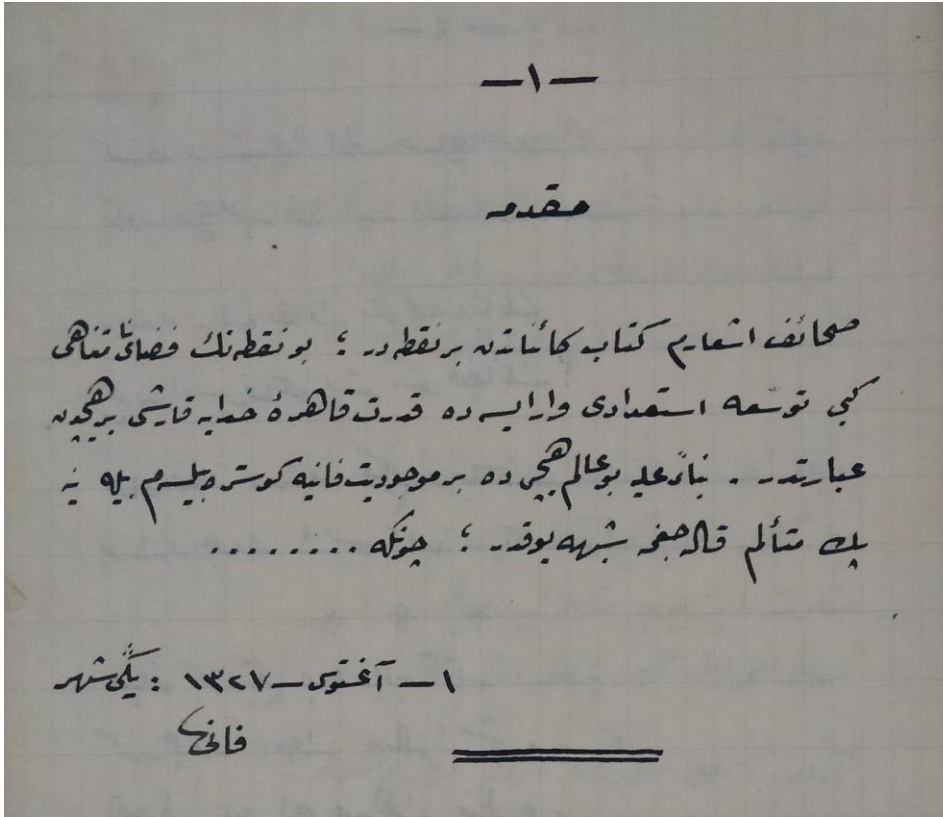 —١—
مقدمه
صحائف اشعارم كتاب كائناتدن بر نقطه در ؛ بو نقطه نك فضائ نامتناهى
كبى توسّعه استعدادى وار ايسه ده قدرت قاهرۀ خدايه قارشى بر هيچدن
عبارتدر . بناءً عليه بو عالم هيچى ده بر موجوديت فانيه كوستره بيلسه م بيله ينه
پك متألم قاله جغمه شبهه يوقدر ؛ چونكه ........
١— آغستوس — ١٣٢٧ : يڭيشهر
فانى